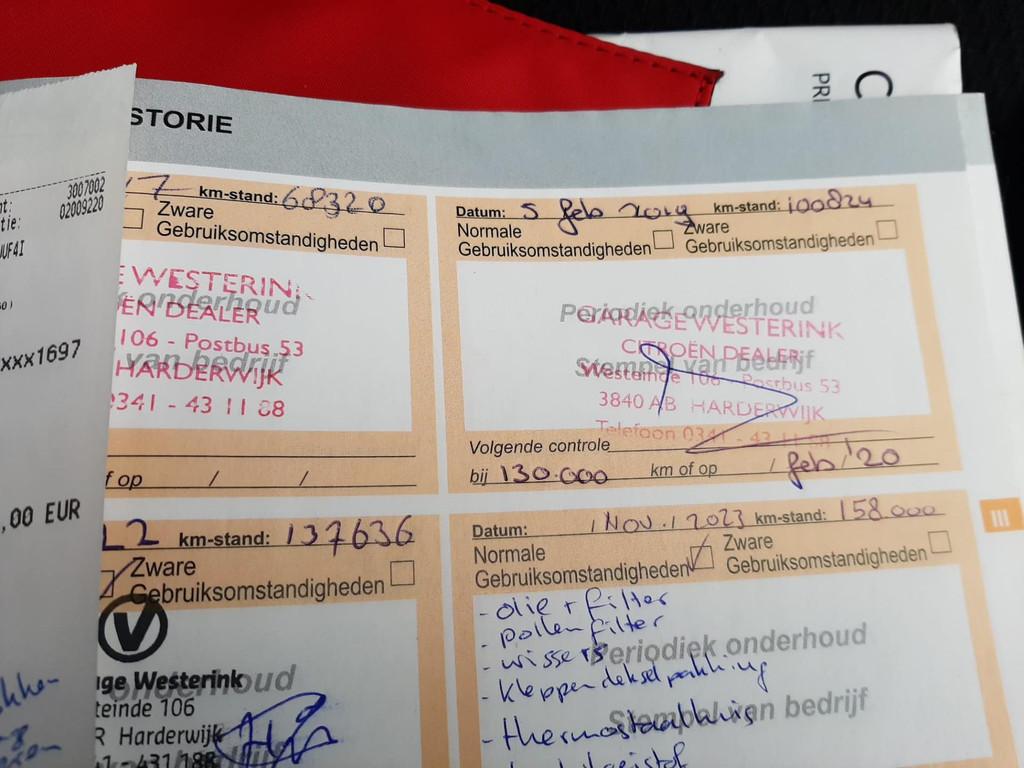 STORIE
C
PRI
3007002
02009220
UUF4I
xxx1697
,00 EUR
17 km-stand: 68320
Zware
Gebruiksomstandigheden
E WESTERIN
onderhoud
ËN DEALER
106 - Postbus 53
van bedrijf
HARDERWIJK
0341 - 43 11 88
f op / /
Datum: 5 feb 2019 km-stand: 100824
Normale Zware
Gebruiksomstandigheden Gebruiksomstandigheden
Periodiek onderhoud
GARAGE WESTERINK
CITROËN DEALER
Stempel van bedrijf
Westeinde 106 - Postbus 53
3840 AB HARDERWIJK
Telefoon 0341 - 43 11 88
Volgende controle
bij 130.000 km of op / feb '20
22 km-stand: 137636
Zware
Gebruiksomstandigheden
V
onderhoud
ge Westerink
teinde 106
R Harderwijk
van bedrijf
41 - 431 188
Datum: / Nov. / 2023 km-stand: 158.000
Normale Zware
Gebruiksomstandigheden Gebruiksomstandigheden
- olie + filter
- pollenfilter
- wissers
Periodiek onderhoud
- kleppendekselpakking
Stempel van bedrijf
- thermostaathuis
III